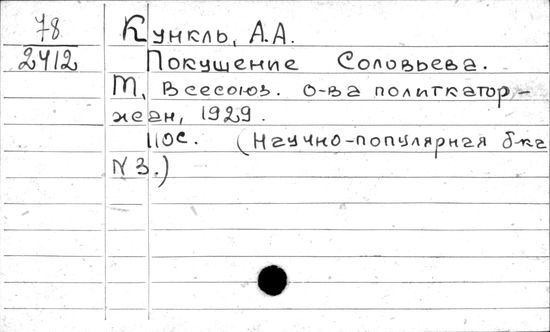 78
2412
Кункль, А.А.
Покушение Соловьева.
М, Всесоюз. о-ва политкатор-
жан, 1929.
110с. (Научно-популярная б-ка
N 3.)